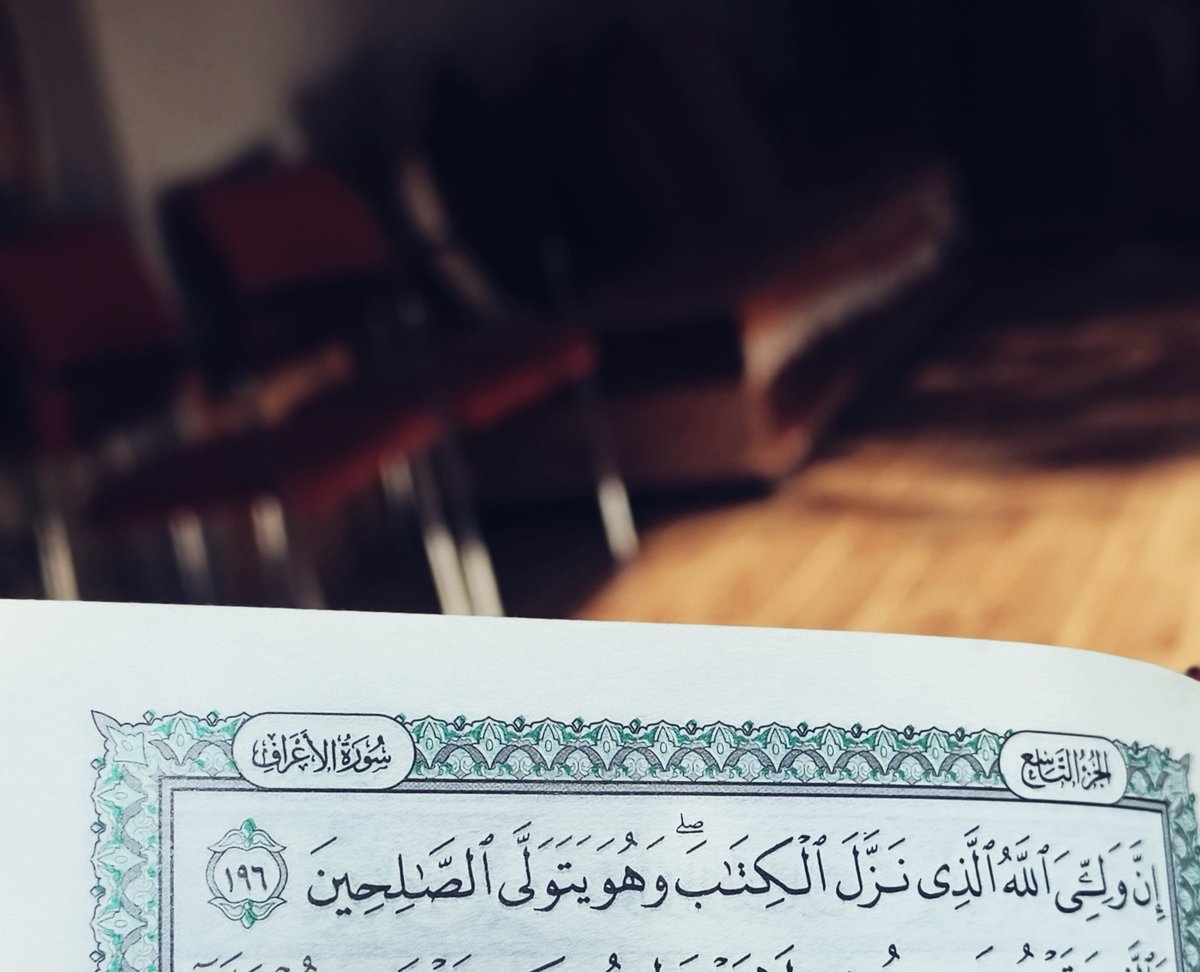 الجزء التاسع
سُورَةُ الأَعْرَافِ
إِنَّ وَلِـِّۧيَ ٱللَّهُ ٱلَّذِى نَزَّلَ ٱلْكِتَـٰبَ ۖ وَهُوَ يَتَوَلَّى ٱلصَّـٰلِحِينَ ١٩٦